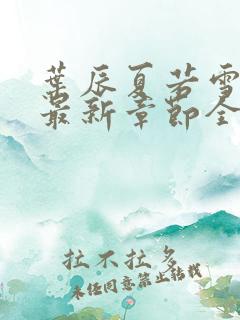 葉辰夏若雪
最新章節全
拉不拉多
未经同意禁止转载